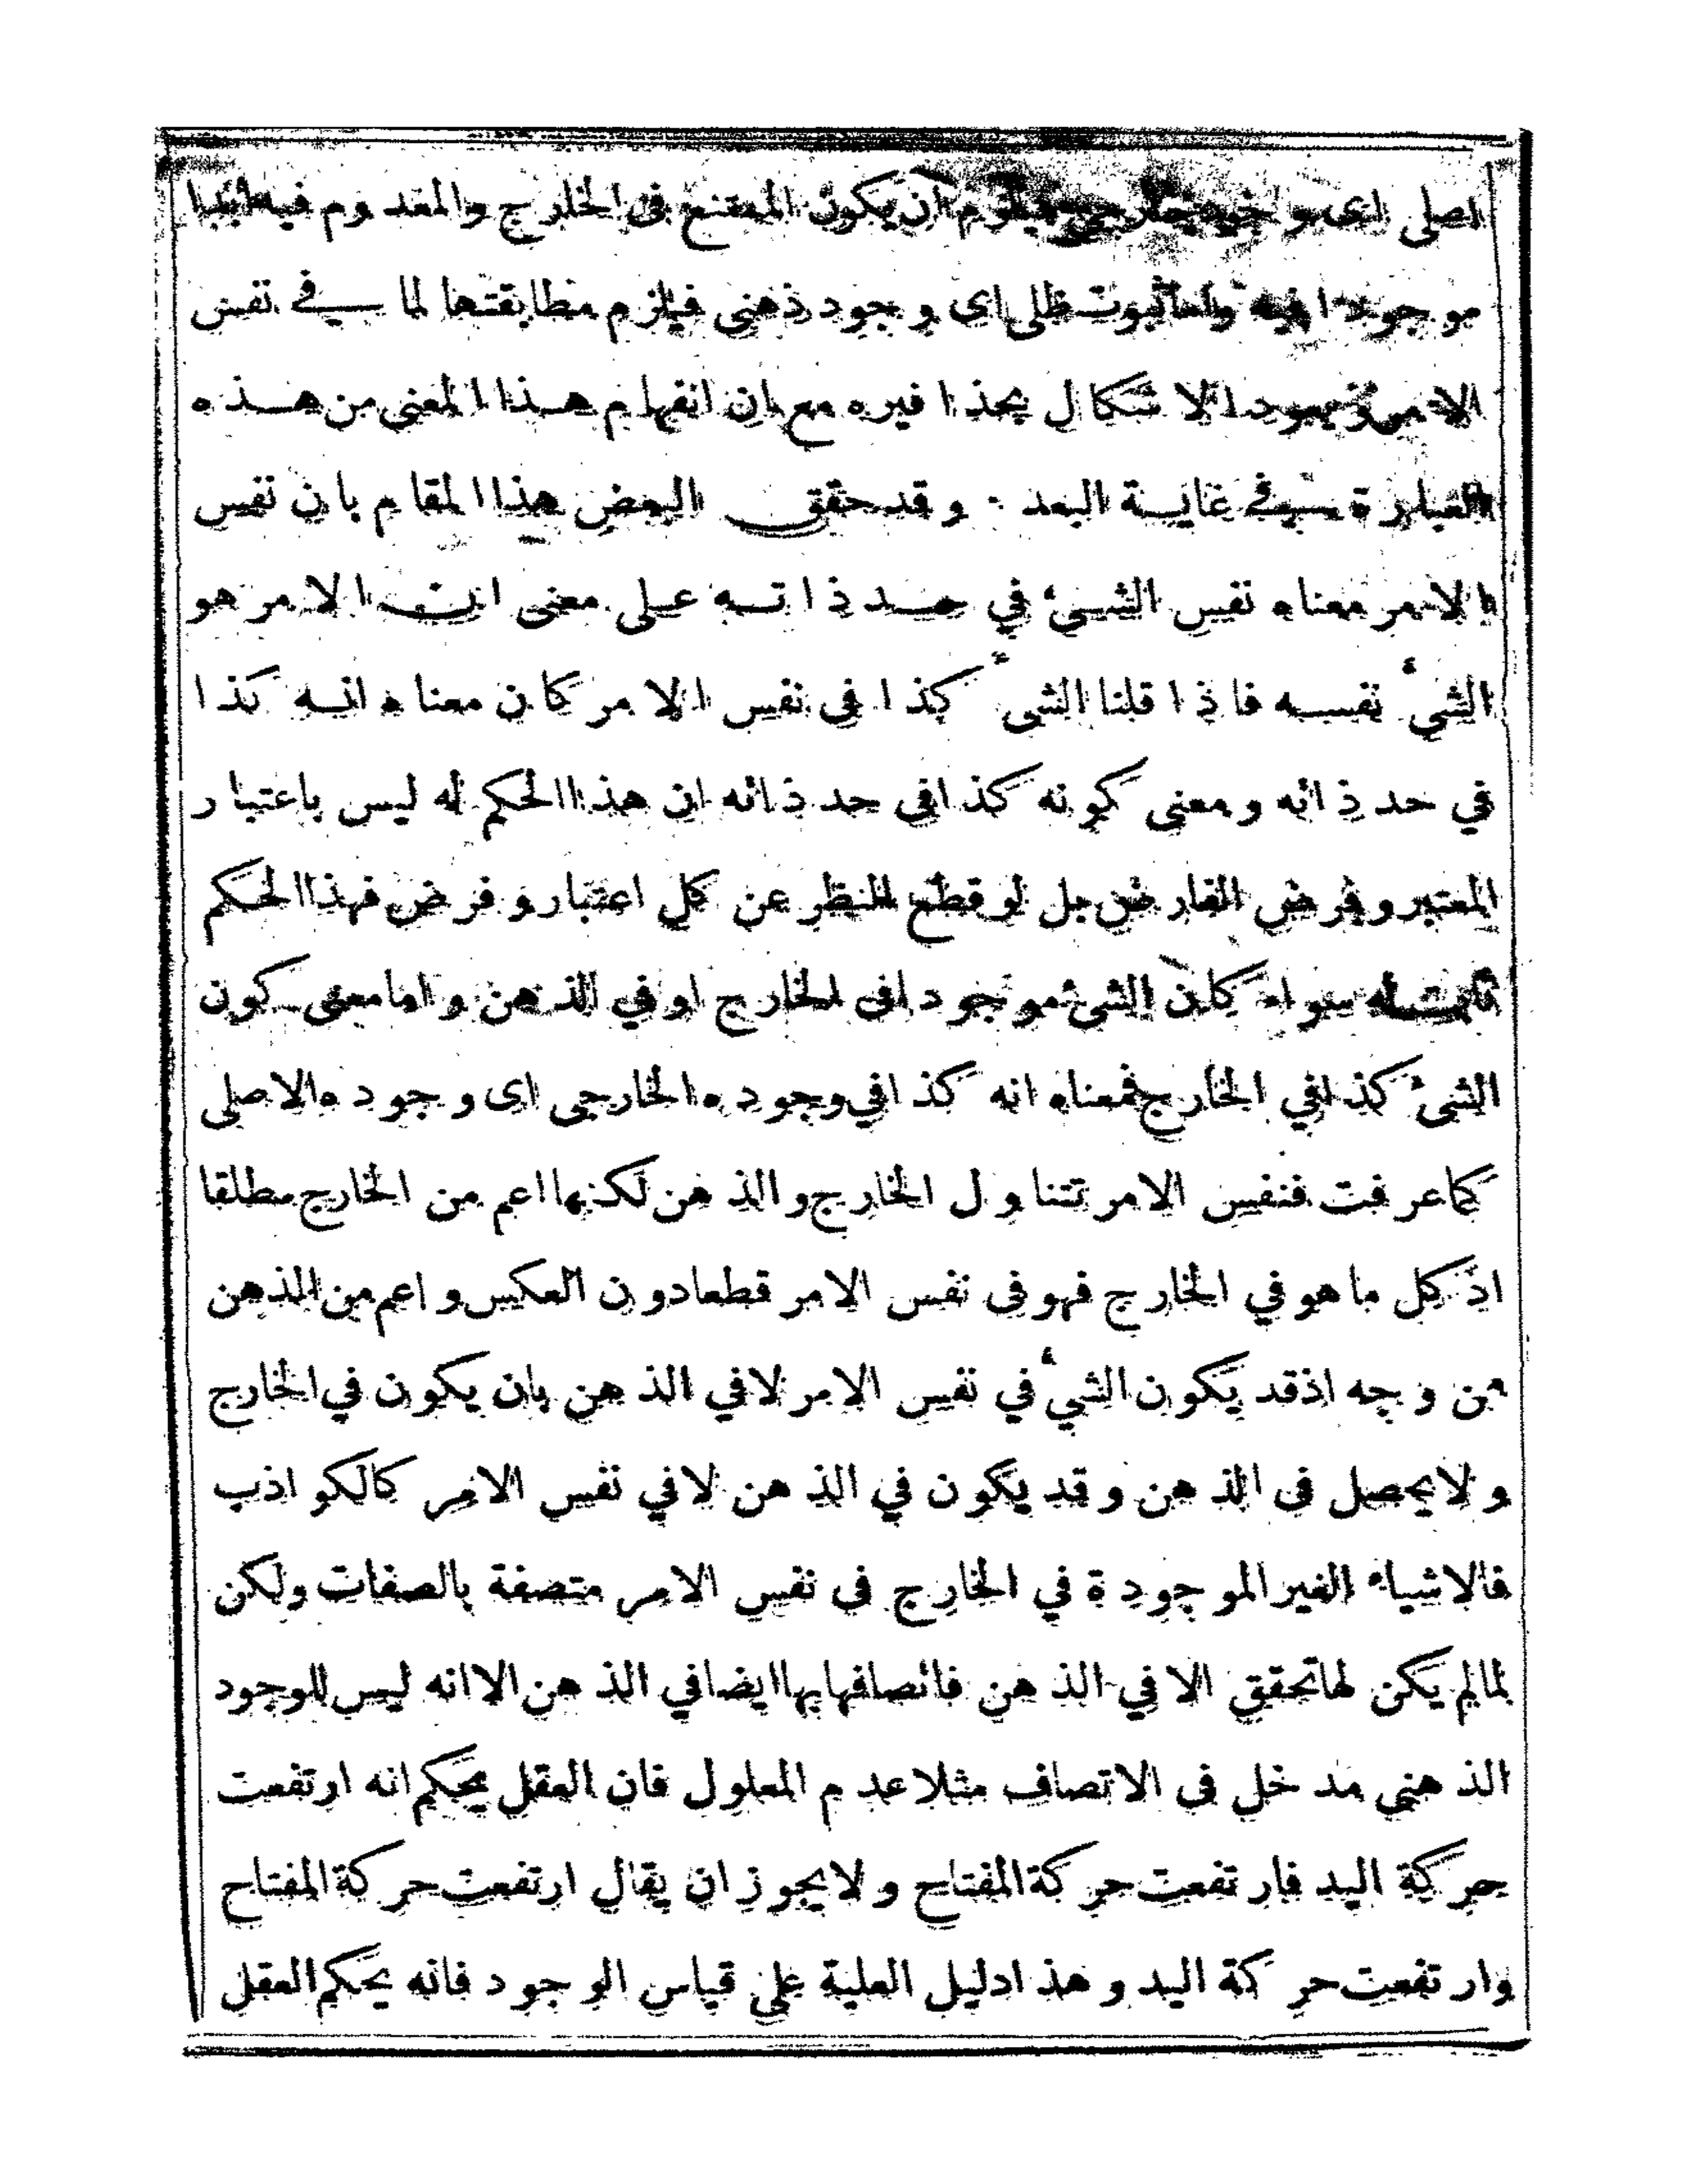 اصلى اى وجود خارجى فيلزم ان يكون الممتنع فى الخارج والمعدوم فيه
موجودا فيه واما ثبوت ظلى اى وجود ذهنى فيلزم مطابقتها لما فے نفس
الامر ويعود الاشكال بحذافيره مع ان انفهام هذا المعنى من هذه
العبارة فے غاية البعد . وقد حقق البعض هذا المقام بان نفس
الامر معناه نفس الشىء في حد ذاته على معنى ان الامر هو
الشىء نفسه فاذا قلنا الشىء كذا فى نفس الامر كان معناه انه كذا
في حد ذاته ومعنى كونه كذا فى حد ذاته ان هذا الحكم له ليس باعتبار
المعتبر وفرض الفارض بل لو قطع النظر عن كل اعتبار وفرض فهذا الحكم
ثابت له سواء كان الشىء موجودا فى الخارج او في الذهن واما معنى كون
الشىء كذا في الخارج فمعناه انه كذا في وجوده الخارجى اى وجوده الاصلى
كما عرفت فنفس الامر تتناول الخارج والذهن لكنها اعم من الخارج مطلقا
اذ كل ما هو في الخارج فهو فى نفس الامر قطعا دون العكس واعم من الذهن
من وجه اذ قد يكون الشيء في نفس الامر لا في الذهن بان يكون في الخارج
ولا يحصل فى الذهن وقد يكون في الذهن لا في نفس الامر كالكواذب
فالاشياء الغير الموجودة في الخارج فى نفس الامر متصفة بالصفات ولكن
لما لم يكن لها تحقق الا في الذهن فاتصافها بها ايضا في الذهن الا انه ليس للوجود
الذهنى مدخل فى الاتصاف مثلا عدم المعلول فان العقل يحكم انه ارتفعت
حركة اليد فارتفعت حركة المفتاح ولا يجوز ان يقال ارتفعت حركة المفتاح
وارتفعت حركة اليد وهذا دليل العلية على قياس الوجود فانه يحكم العقل